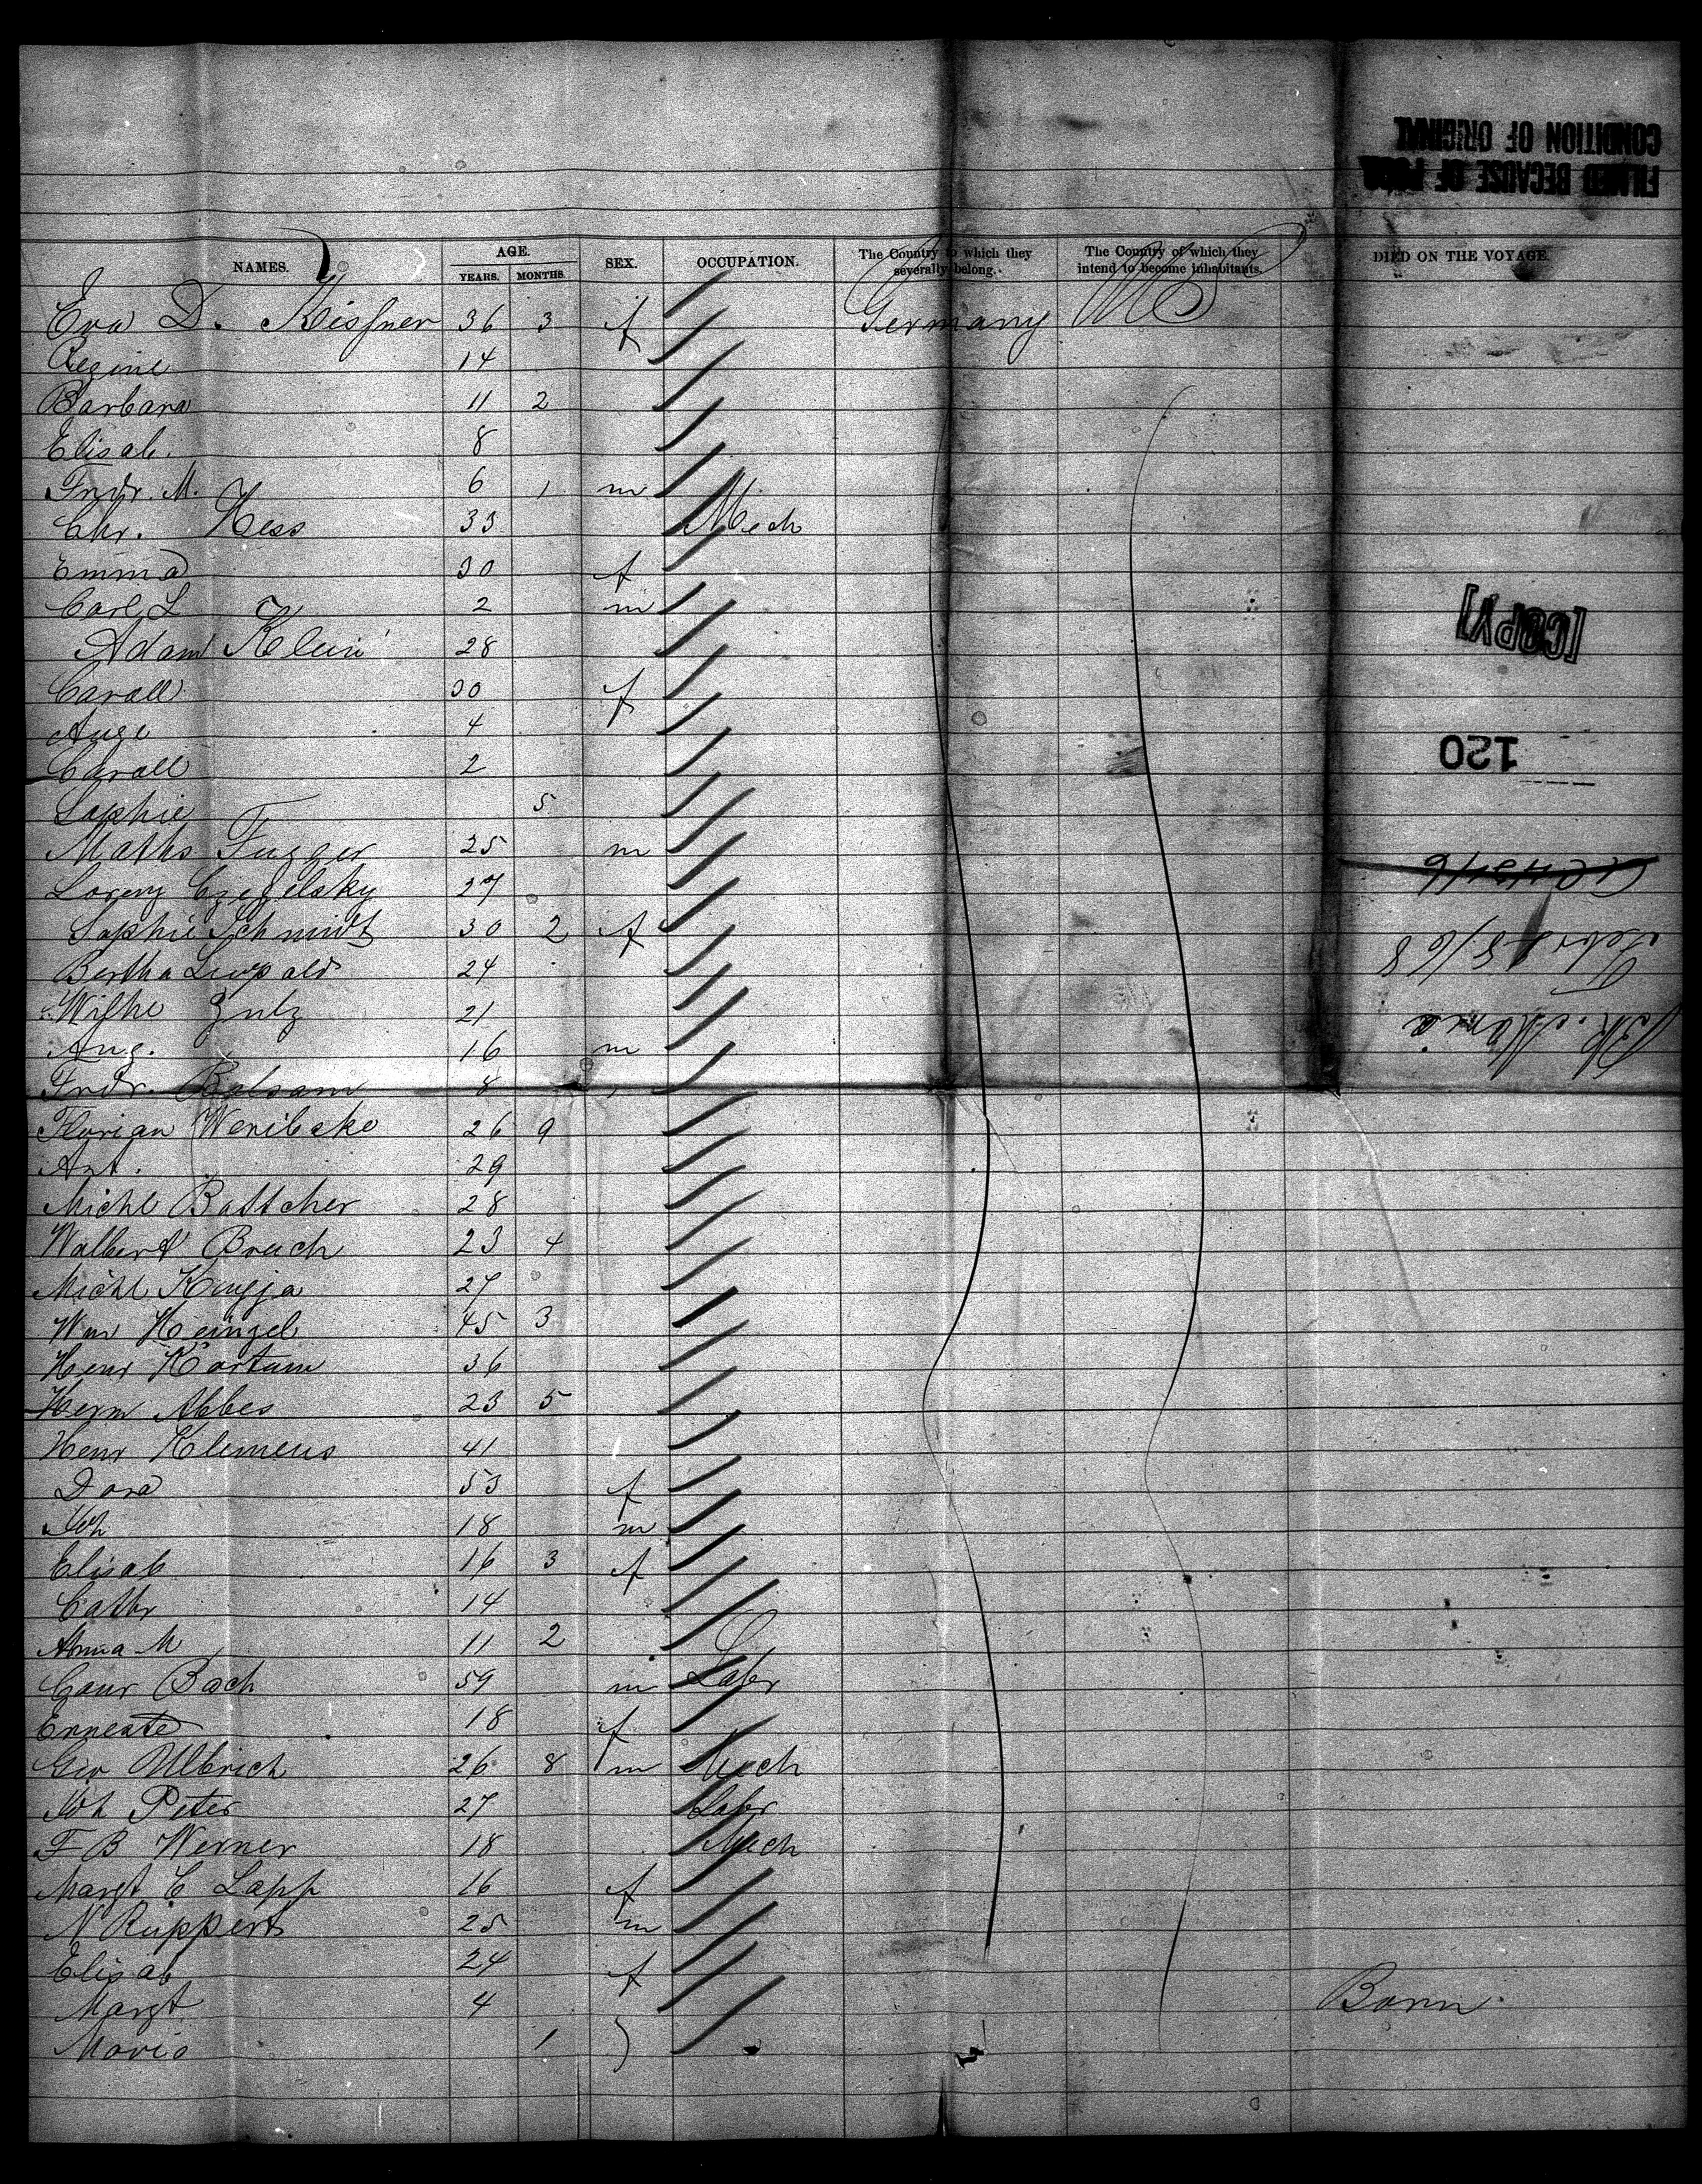 CONDITION OF ORIGINAL
FILMED BECAUSE OF POOR
NAMES. AGE. YEARS. MONTHS. SEX. OCCUPATION. The Country to which they severally belong. The Country of which they intend to become inhabitants. DIED ON THE VOYAGE.
Eva D. Kissner 36 3 f Germany US
Regine 14
Barbara 11 2
Elisab. 8
Frdr. M. 6 1 m
Chr. Hess 33 Mech
Emma 30 f
Carl L 2 m
Adam Klein 28
Caroll 30 f
Auge 4
Caroll 2
Sophie 5
Maths Fugger 25 m
Lorenz 27
Sophie Schmidt 30 2 f
Bertha Liwpold 24
Wilhe 21
Aug. 16 m
Frdr. Balsam 8
Florian Weribeke 26 9
Ant. 29
Michl Bottcher 28
Walbert Bruch 23 4
Michl 27
Wm Heinzel 45 3
Henr Kortum 36
Herm Abbes 23 5
Henr Klemens 41
Dora 53 f
Joh 18 m
Elisab 16 3 f
Cathr 14
Anna M 11 2
Bach 59 m Labr
Erneste 18 f
Ulbrich 26 8 m Mech
Joh Peter 27 Labr
F B Werner 18 Mech
Margt C Lapp 16 f
N Ruppert 25 m
Elisab 24 f
Margt 4
Marie 1 Born
[COPY]
120
Febr 18/68
Maria